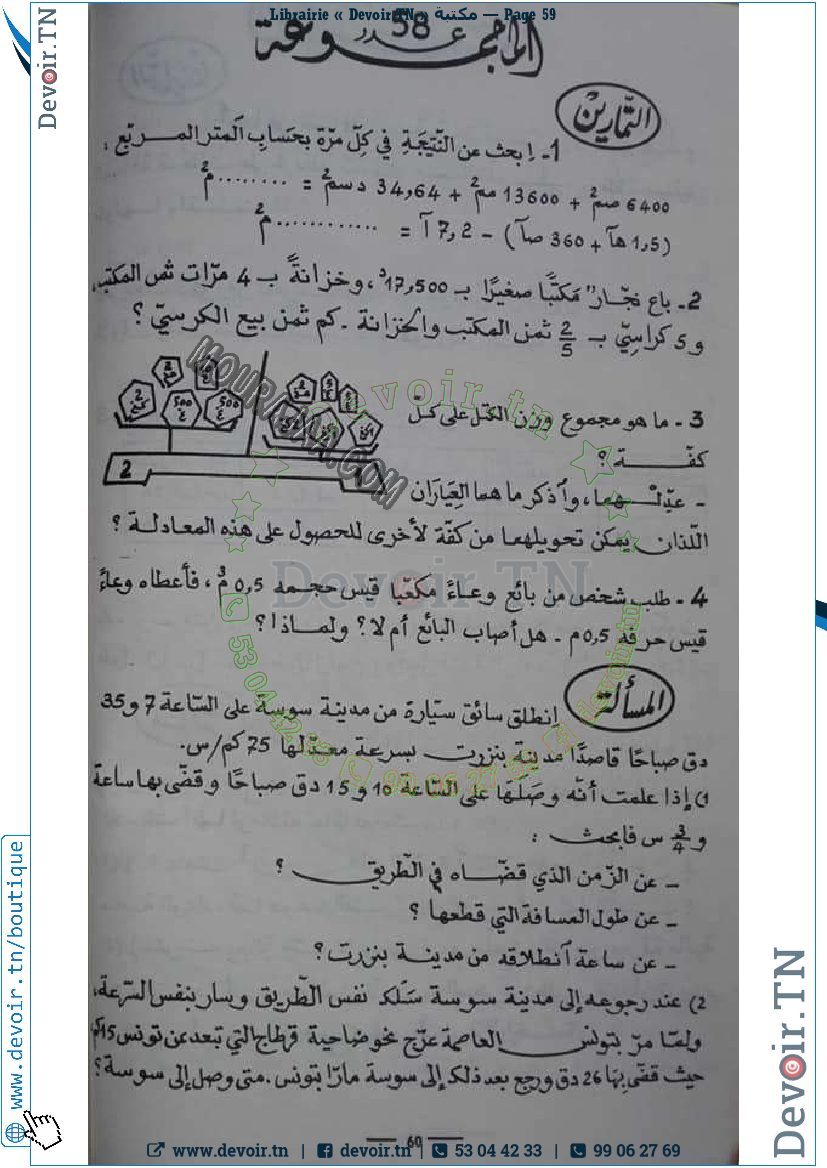 Librairie « Devoir.TN » مكتبة — Page 59
Devoir.TN
المجموعة عدد 58
التمارين
1- إبحث عن النتيجة في كل مرة بحساب المتر المربع .
6400 صم2 + 13600 مم2 + 34,64 دسم2 = ........ م2
(1,5 هآ + 360 صآ) - 7,2 آ = ............ م2
2- باع نجار مكتبا صغيرا بـ 17,500د، وخزانة بـ 4 مرات ثمن المكتب
و 5 كراسي بـ 2/5 ثمن المكتب والخزانة . كم ثمن بيع الكرسي ؟
3 - ما هو مجموع وزن الكتل على كل
كفـــة ؟
- عدلــهما، وآذكر ما هما العياران
اللذان يمكن تحويلهما من كفة لأخرى للحصول على هذه المعادلة ؟
500
500
2
MOURAJAA.COM
Devoir.TN
4 - طلب شخص من بائع وعاء مكعبا قيس حجمه 0,5 م3 ، فأعطاه وعاء
قيس حرفه 0,5 م . هل أصاب البائع أم لا ؟ ولماذا ؟
المسألة
إنطلق سائق سيارة من مدينة سوسة على الساعة 7 و 35
دق صباحا قاصدا مدينة بنزرت بسرعة معدلها 75 كم/س.
1) إذا علمت أنه وصلها على الساعة 10 و 15 دق صباحا وقضى بها ساعة
و 3/4 س فابحث :
- عن الزمن الذي قضاه في الطريق ؟
- عن طول المسافة التي قطعها ؟
- عن ساعة آنطلاقه من مدينة بنزرت ؟
2) عند رجوعه إلى مدينة سوسة سلك نفس الطريق وسار بنفس السرعة،
ولما مر بتونس العاصمة عرج نحو ضاحية قرطاج التي تبعد عن تونس 15 كم
حيث قضى بها 26 دق ورجع بعد ذلك إلى سوسة مارا بتونس . متى وصل إلى سوسة ؟
60
www.devoir.tn/boutique
Devoir.TN
www.devoir.tn | devoir.tn | 53 04 42 33 | 99 06 27 69